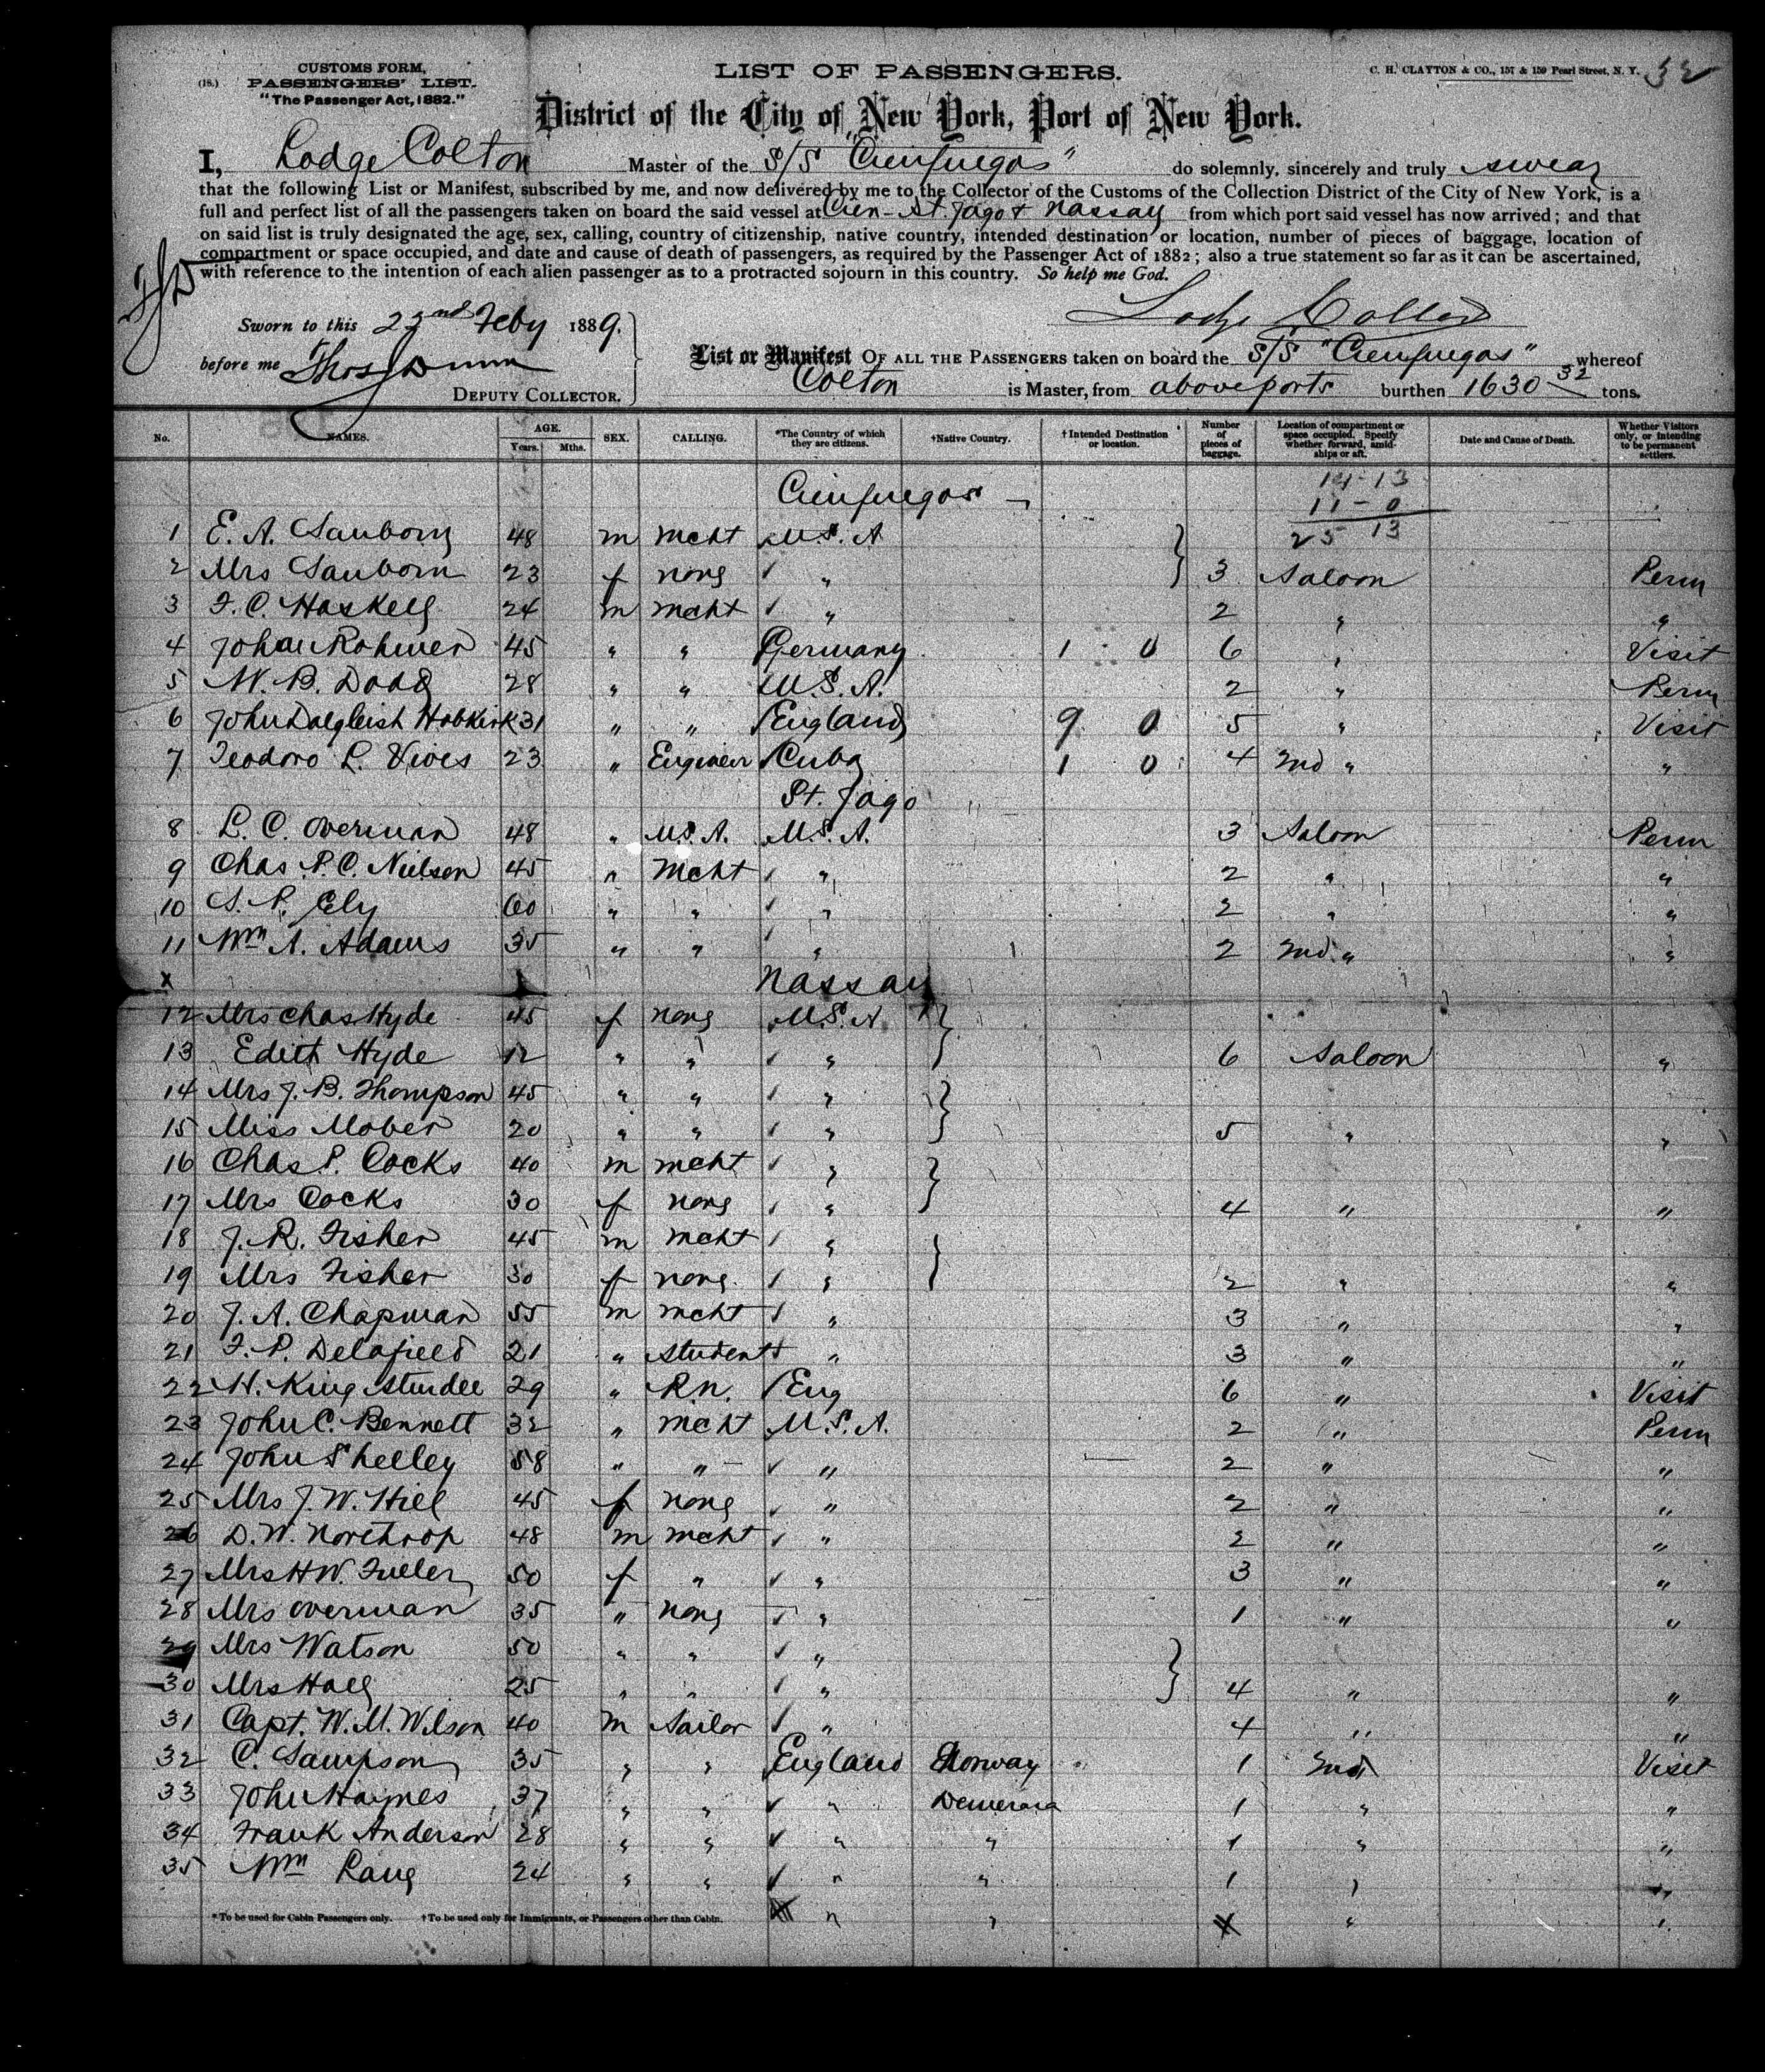 CUSTOMS FORM,
(18.) PASSENGERS' LIST.
"The Passenger Act, 1882."
LIST OF PASSENGERS.
C. H. CLAYTON & CO., 157 & 159 Pearl Street, N. Y. 32
District of the City of New York, Port of New York.
I, Lodge Colton Master of the S/S "Cienfuegos" do solemnly, sincerely and truly swear
that the following List or Manifest, subscribed by me, and now delivered by me to the Collector of the Customs of the Collection District of the City of New York, is a
full and perfect list of all the passengers taken on board the said vessel at Cien- St. Jago & Nassau from which port said vessel has now arrived; and that
on said list is truly designated the age, sex, calling, country of citizenship, native country, intended destination or location, number of pieces of baggage, location of
compartment or space occupied, and date and cause of death of passengers, as required by the Passenger Act of 1882; also a true statement so far as it can be ascertained,
with reference to the intention of each alien passenger as to a protracted sojourn in this country. So help me God.
Lodge Colton
Sworn to this 23nd Feby 1889.
before me Thos Dunn
DEPUTY COLLECTOR.
List or Manifest OF ALL THE PASSENGERS taken on board the S/S "Cienfuegos" whereof
Colton is Master, from above ports burthen 1630 32 tons.
No. NAMES. AGE. Years. Mths. SEX. CALLING. *The Country of which they are citizens. †Native Country. †Intended Destination or location. Number of pieces of baggage. Location of compartment or space occupied. Specify whether forward, amidships or aft. Date and Cause of Death. Whether Visitors only, or intending to be permanent settlers.
14-13
Cienfuegos 11-0
25 13
1 E. A. Sanborn 48 m mcht U.S.A
2 Mrs Sanborn 23 f none " 3 Saloon Perm
3 F. C. Haskell 24 m mcht " 2 " "
4 Johan Rohwer 45 " " Germany 1 0 6 " Visit
5 W. B. Dodd 28 " " U.S.A. 2 " Perm
6 John Dalgleish Hobkirk 31 " " England 9 0 5 " Visit
7 Teodoro L. Vives 23 " Engineer Cuba 1 0 4 2nd " "
St. Jago
8 L. C. Overman 48 " U.S.A. U.S.A. 3 Saloon Perm
9 Chas P. C. Nielson 45 " mcht " 2 " "
10 S. P. Ely 60 " " " 2 " "
11 Wm A. Adams 35 " " " 2 2nd " "
x Nassau
12 Mrs Chas Hyde 45 f none U.S.A
13 Edith Hyde 12 " " " 6 Saloon "
14 Mrs J. B. Thompson 45 " " "
15 Miss Mober 20 " " " 5 " "
16 Chas P. Cocks 40 m mcht "
17 Mrs Cocks 30 f none " 4 " "
18 J. R. Fisher 45 m mcht "
19 Mrs Fisher 30 f none " 2 " "
20 J. A. Chapman 55 m mcht " 3 " "
21 F. P. Delafield 21 " student " 3 " "
22 H. King Sturdee 29 " R.N. Eng 6 " Visit
23 John C. Bennett 32 " mcht U.S.A. 2 " Perm
24 John Shelley 58 " " " 2 " "
25 Mrs J. W. Hill 45 f none " 2 " "
26 D. W. Northrop 48 m mcht " 2 " "
27 Mrs H W. Fuller 50 f " " 3 " "
28 Mrs Overman 35 " none " 1 " "
29 Mrs Watson 50 " " "
30 Mrs Hall 25 " " " 4 " "
31 Capt. W. M. Wilson 40 m Sailor " 4 " "
32 C. Sampson 35 " " England Norway 1 2nd Visit
33 John Haynes 37 " " " Demerara 1 " "
34 Frank Anderson 28 " " " " 1 " "
35 Wm Lang 24 " " " " 1 " "
*To be used for Cabin Passengers only. †To be used only for Immigrants, or Passengers other than Cabin. " " " "